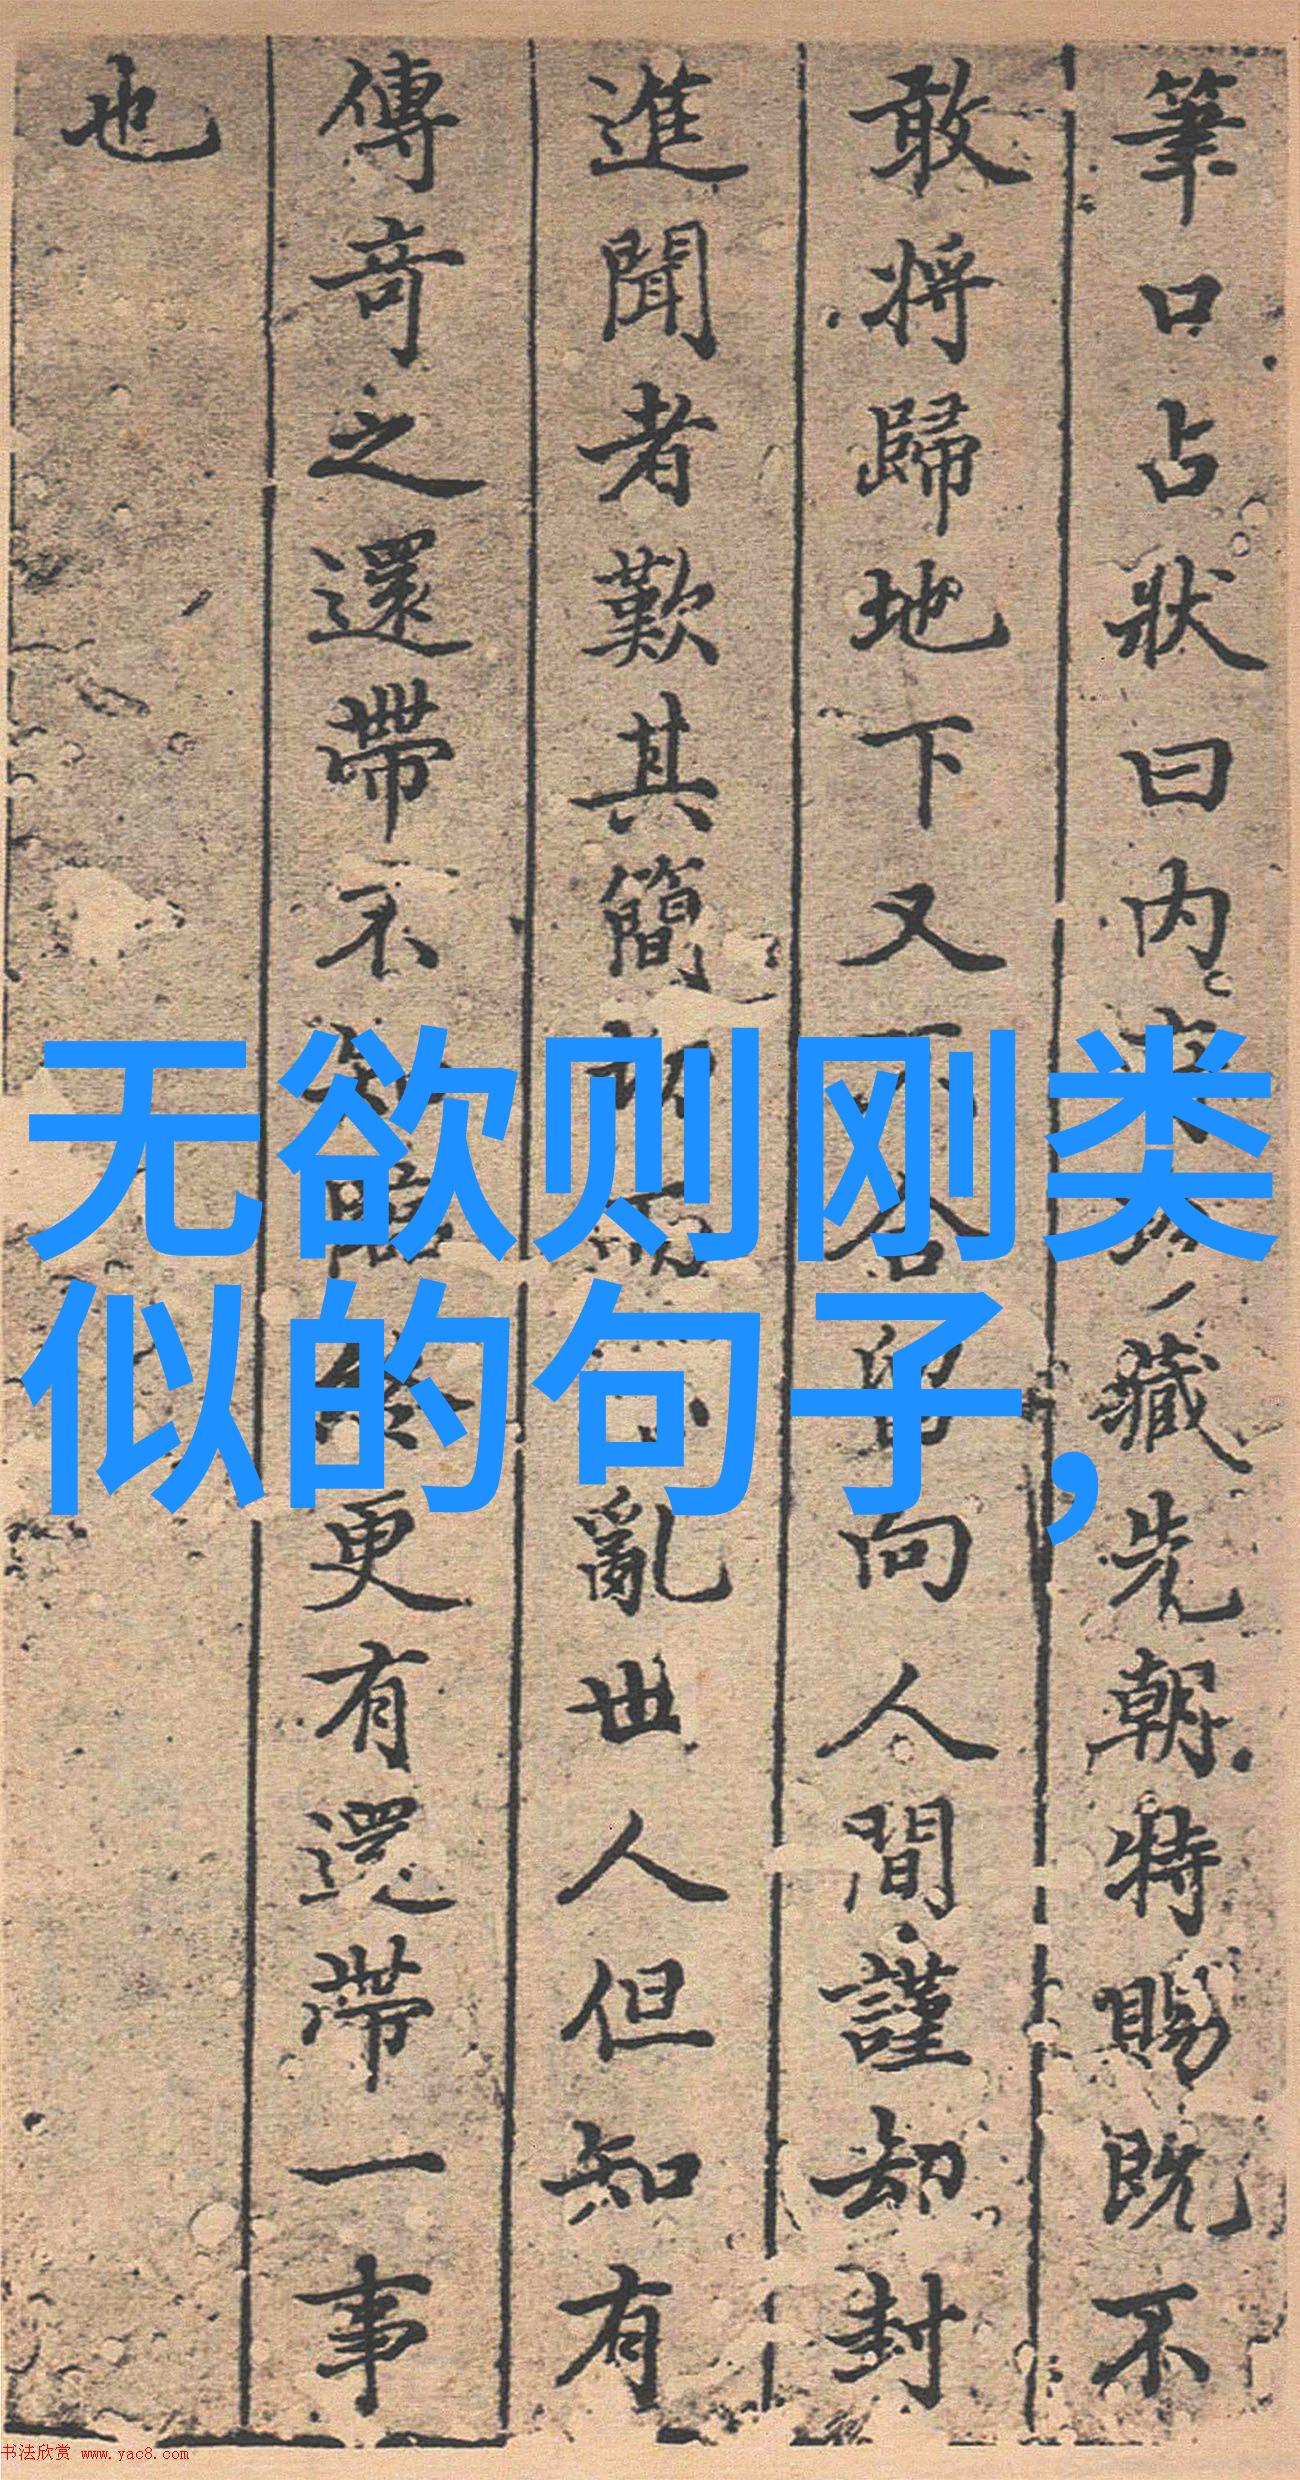 筆口占狀曰內
藏先朝特賜既不
敢將歸地下又
向人間謹却封
進聞者歎其簡
亂世人但知有
傳奇之還帶不
更有還帶一事
也
无欲则刚类
似的句子,
书法欣赏 www.yac8.com